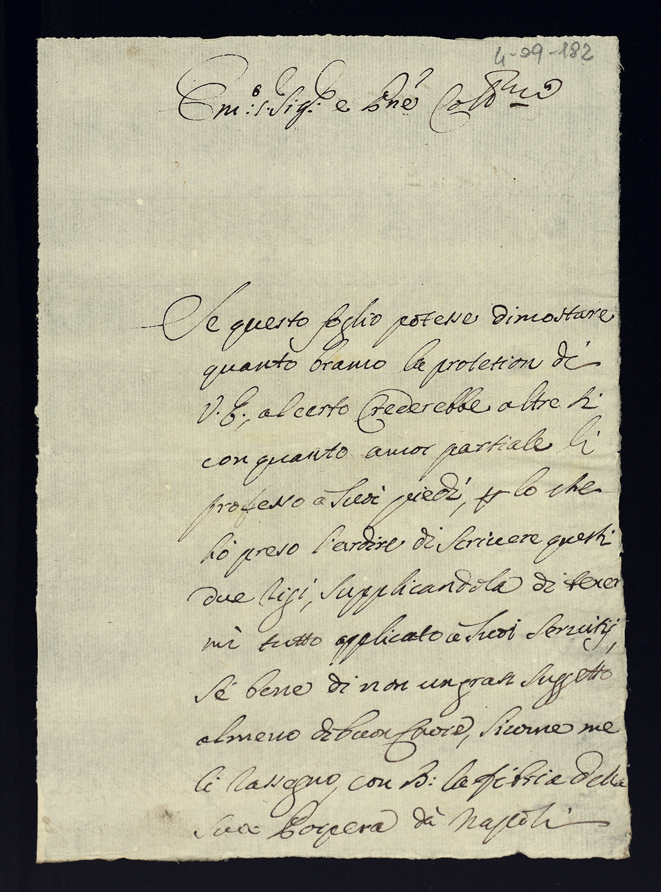 4-09-182
Em: S. Sig.r e Pne Coll.mo
Se questo foglio potesse dimostare
quanto bramo la protetion di
V. E., al certo Crederebbe altre si
con quanto amor partiale li
professo a Suoi piedi, p lo che
hò preso l'ardire di scrivere questi
due rigi, supplicandola di tener
mi tutto applicato à Suoi Servitij,
sé bene di non un gran suggetto
almeno di buon Cuore, sicome me
li rassegno, con B: la
Sua Porpera dà Napoli